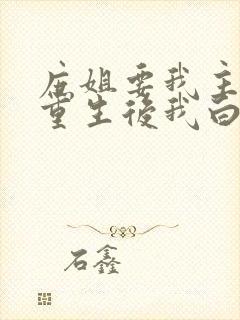 庶姐要我主
重生後我向
石鑫